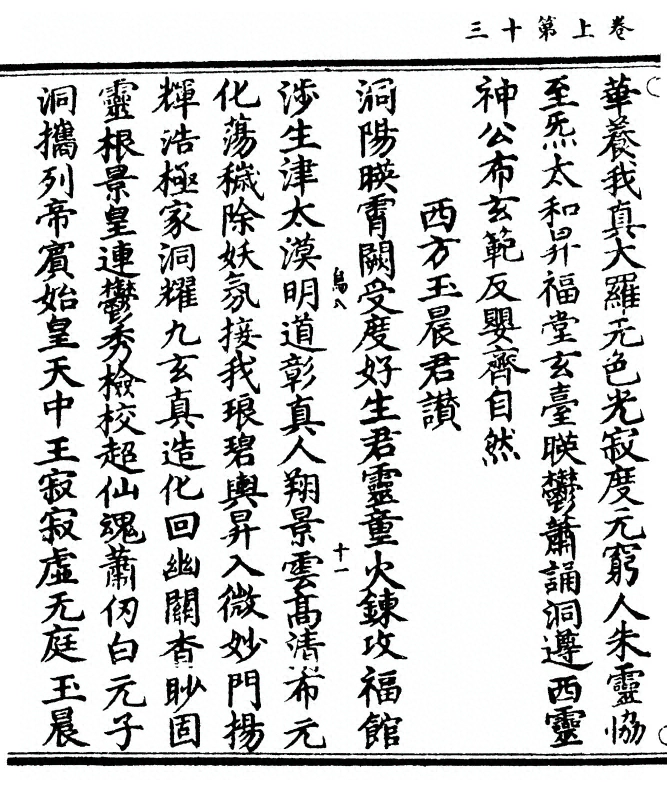 卷上第十三
華養我真大羅元色光寂度无窮人朱靈恊
至炁太和昇福堂玄臺暎鬱蕭誦洞遵西靈
神公布玄範反嬰齊自然
西方玉晨君讃
洞陽暎霄闕受度好生君靈童火鍊攻福館
渉生津太漠明道彰真人翔景雲髙清希元
烏入
十一
化蕩穢除妖氛接我琅碧輿昇入微妙門揚
輝浩極家洞耀九玄真造化回幽關杳眇固
靈根景皇連鬱秀檢校超仙魂蕭仞白元子
洞攜列帝賓始皇天中王寂寂虛无庭玉晨